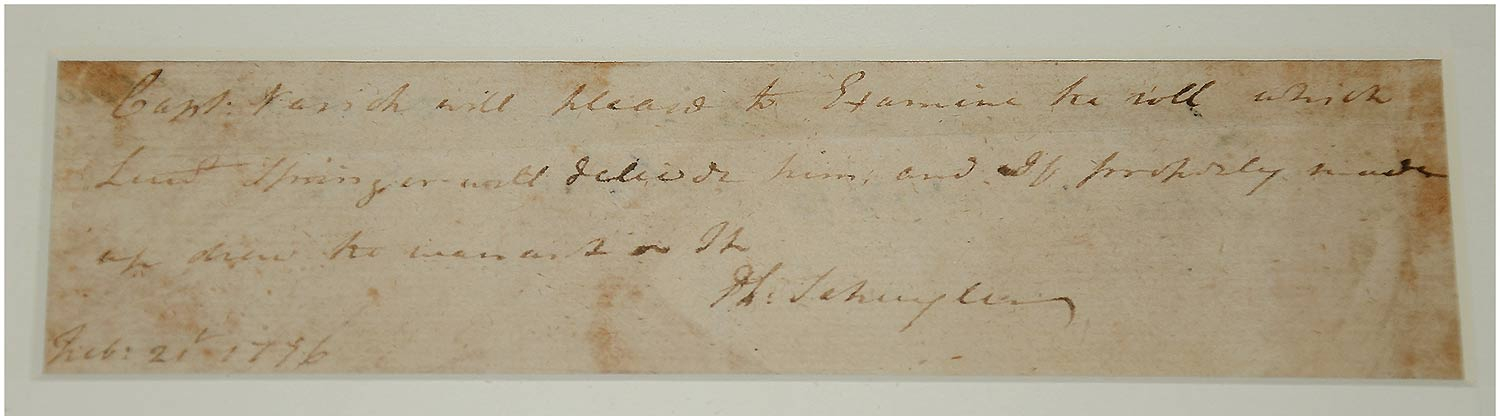 Capt. Varick will please to Examine he roll which
Lieut Springer will deliver him, and If properly made
up draw he warrant on It
Ph: Schuyler
Feb: 21t 1776